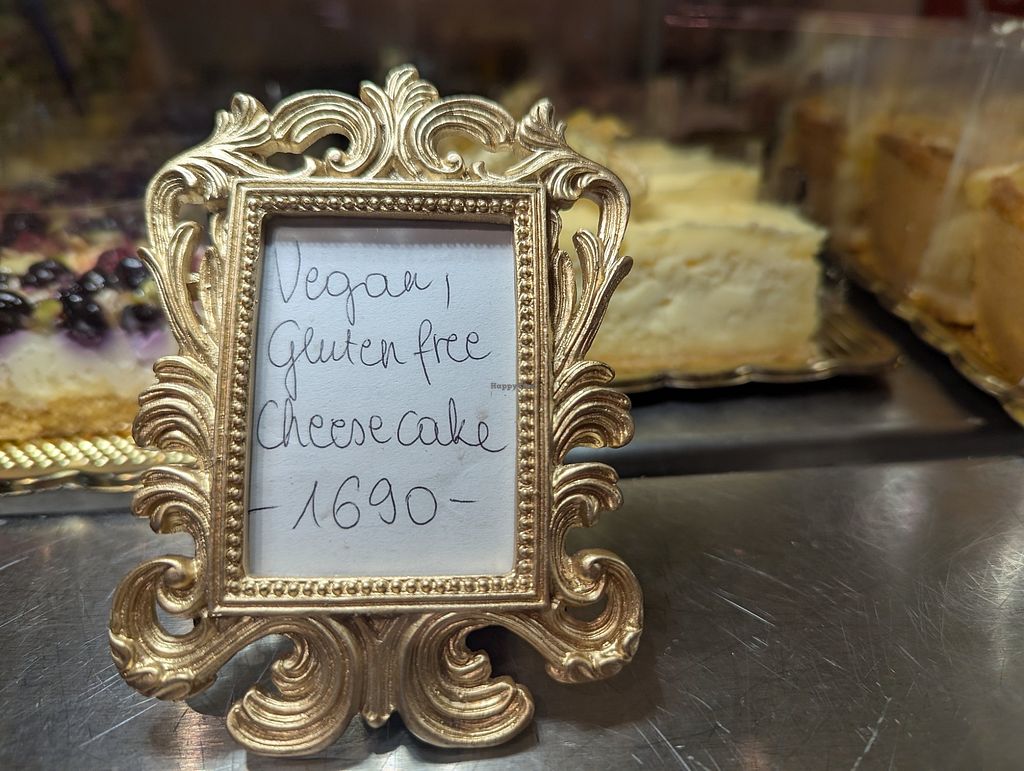 Vegan,
Gluten free
Cheese cake
- 1690 -